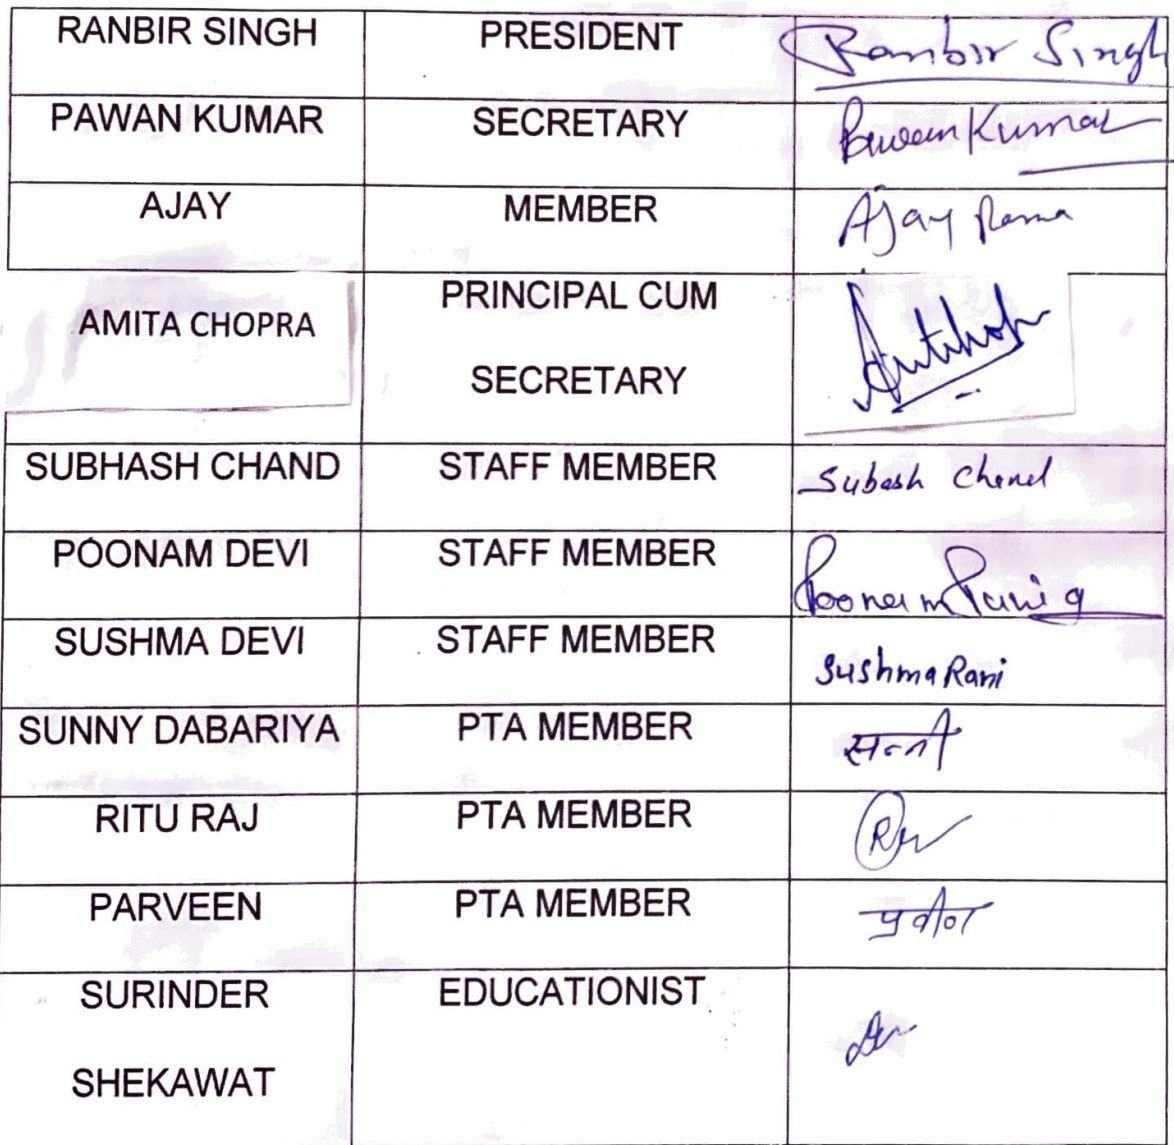 RANBIR SINGH PRESIDENT Ranbir Singh
PAWAN KUMAR SECRETARY Pawan Kumar
AJAY MEMBER Ajay Rama
AMITA CHOPRA PRINCIPAL CUM
SECRETARY
SUBHASH CHAND STAFF MEMBER Subash Chand
POONAM DEVI STAFF MEMBER Poonam
SUSHMA DEVI STAFF MEMBER Sushma Rani
SUNNY DABARIYA PTA MEMBER सन्नी
RITU RAJ PTA MEMBER
PARVEEN PTA MEMBER प्रवीण
SURINDER EDUCATIONIST
SHEKAWAT